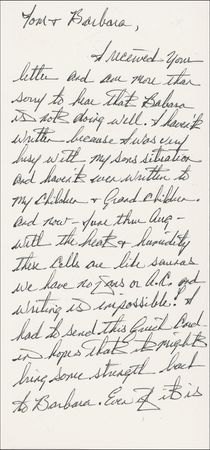 Tom & Barbara,
I received your
letter and am more than
sorry to hear that Babara
is not doing well. I haven't
written - because I was very
busy with my sons situation
and haven't even written to
my children & Grand children.
And now - June thru Aug -
with the heat & humidity
these cells are like saunas
we have no fans or A.C. and
writing is impossible! I
had to send this Quick Card
in hopes that it might
bring some strength back
to Barbara. Even if it is